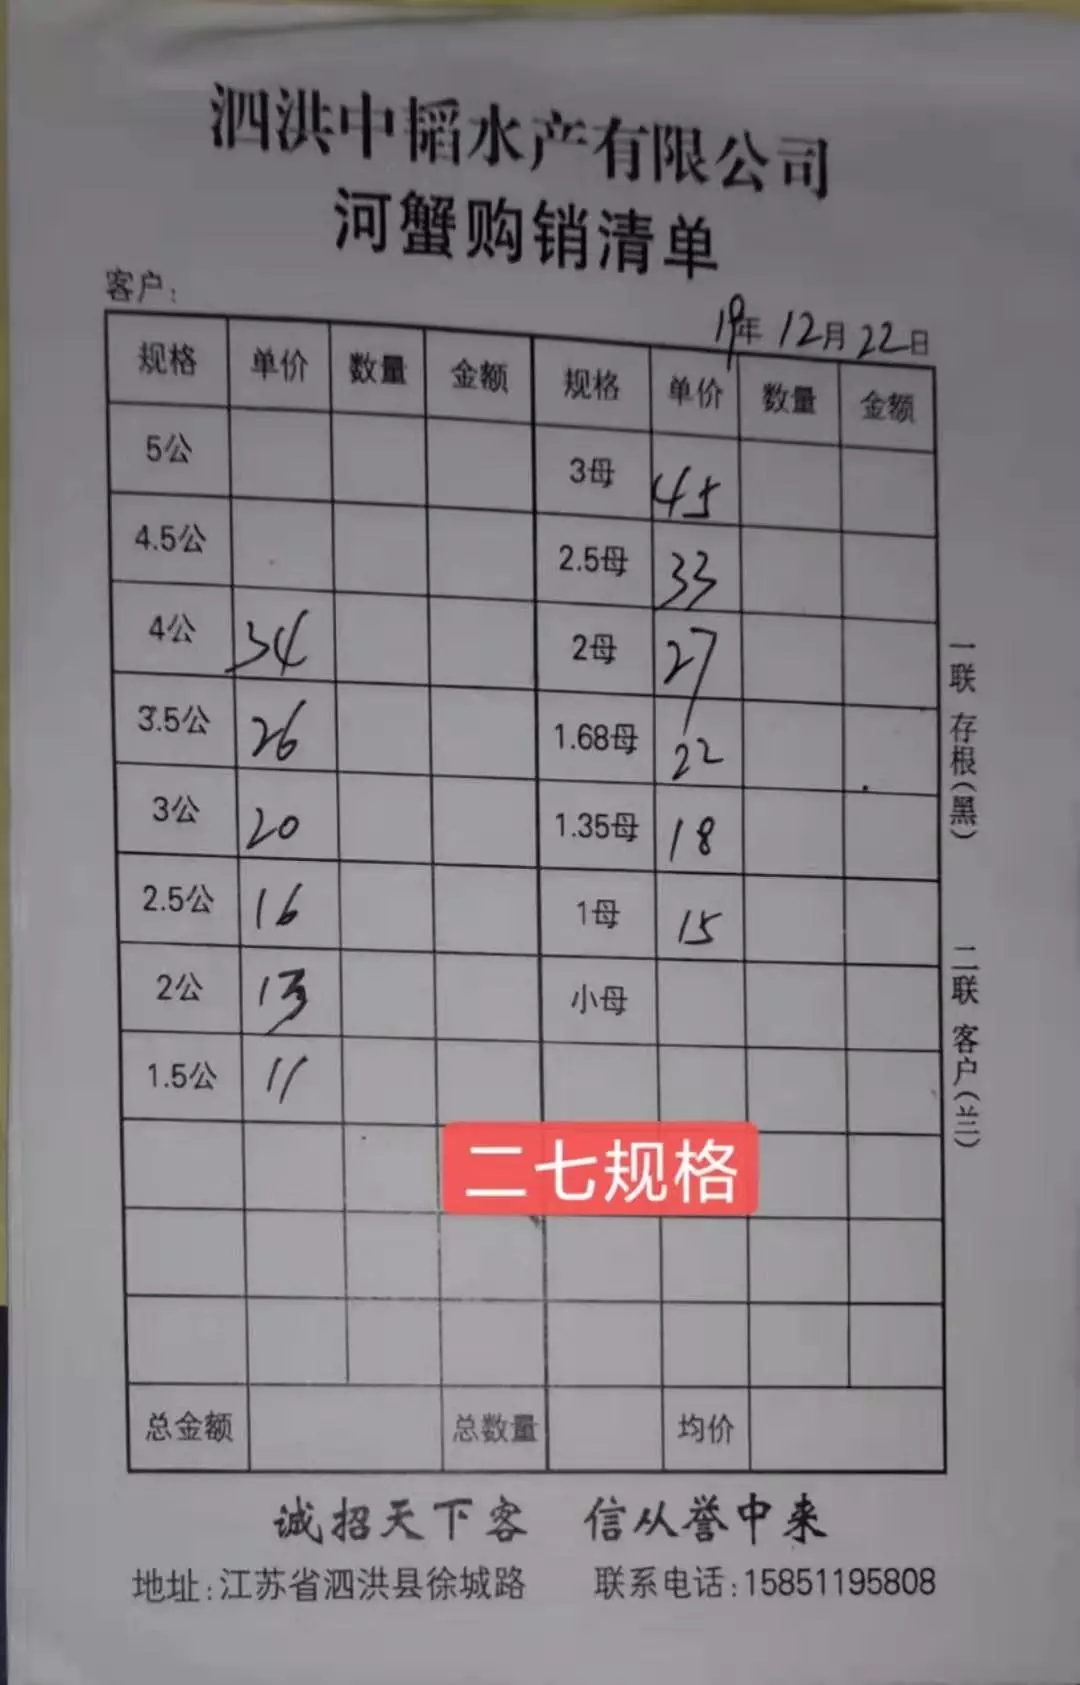 泗洪中韬水产有限公司
河蟹购销清单
客户:
19年12月22日
规格 单价 数量 金额 规格 单价 数量 金额
5公 3母 45
4.5公 2.5母 33
4公 34 2母 27
3.5公 26 1.68母 22
3公 20 1.35母 18
2.5公 16 1母 15
2公 13 小母
1.5公 11
二七规格
总金额 总数量 均价
诚招天下客 信从誉中来
地址:江苏省泗洪县徐城路 联系电话:15851195808
一联 存根(黑)
二联 客户(兰)